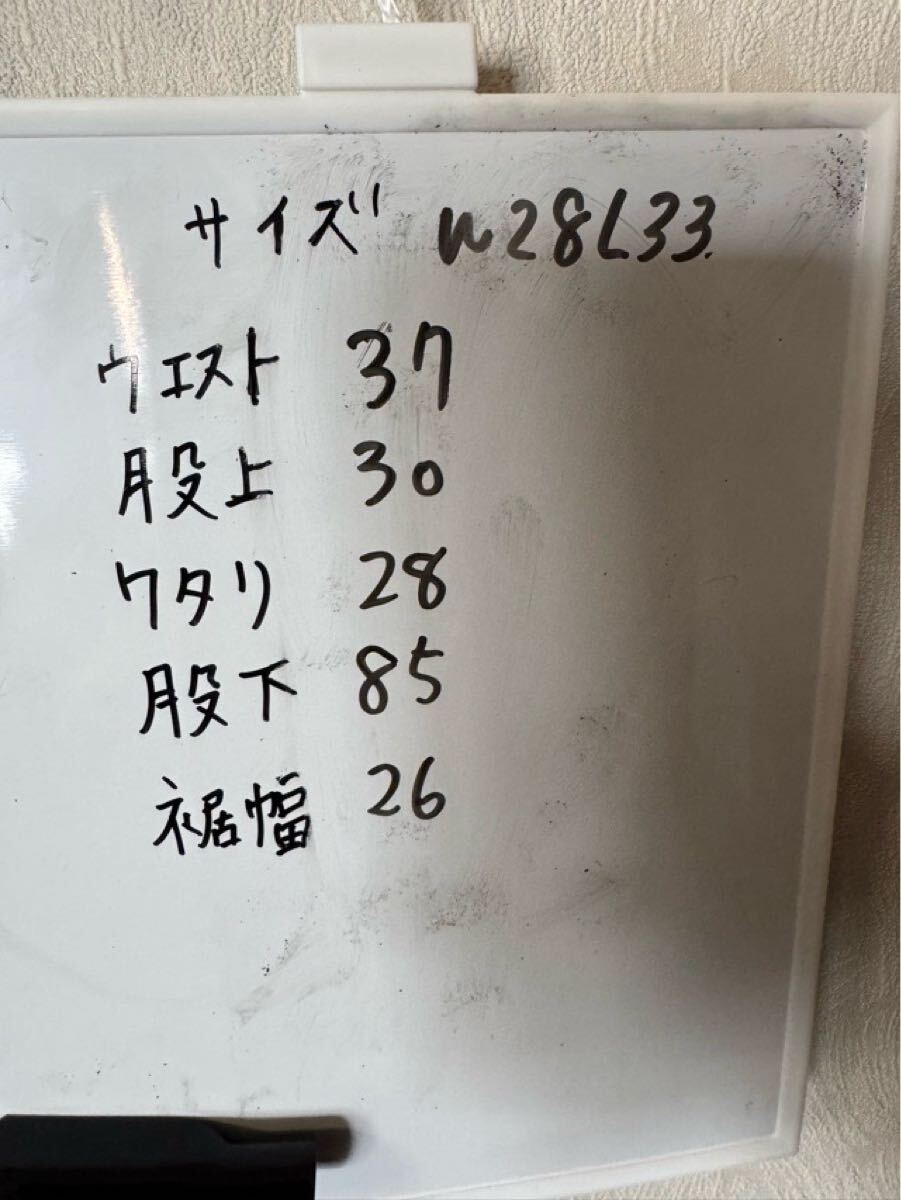 サイズ W28L33.
ウエスト 37
股上 30
ワタリ 28
股下 85
裾幅 26